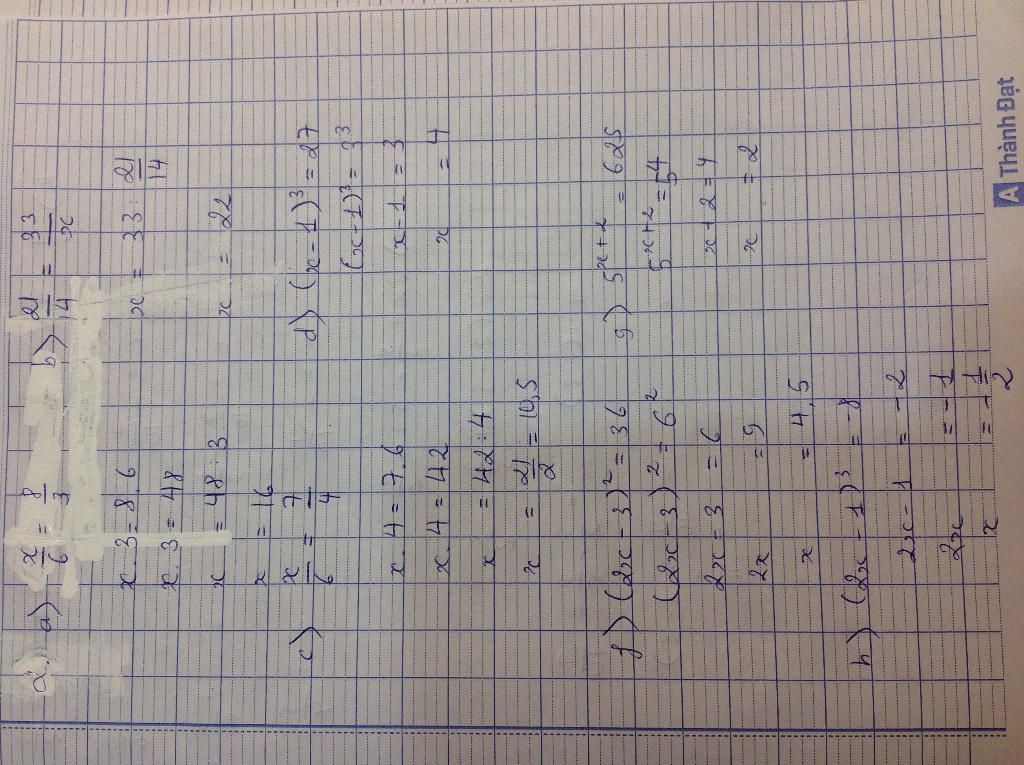 2. a) x/6 = 8/3
x.3 = 8.6
x.3 = 48
x = 48 : 3
x = 16
b) 21/14 = 33/x
x = 33 : 21/14
x = 22
c) x/6 = 7/4
x.4 = 7.6
x.4 = 42
x = 42 : 4
x = 21/2 = 10,5
d) (x-1)³ = 27
(x-1)³ = 3³
x-1 = 3
x = 4
f) (2x-3)² = 36
(2x-3)² = 6²
2x-3 = 6
2x = 9
x = 4,5
g) 5ˣ⁺² = 625
5ˣ⁺² = 5⁴
x+2 = 4
x = 2
h) (2x-1)³ = -8
2x-1 = -2
2x = -1
x = -1/2
A Thành Đạt